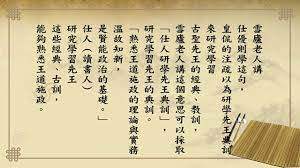 雪廬老人講
仕優則學這句，
皇侃的注疏以為研學先王典訓
來研究學習
古聖先王的經典、教訓，
雪廬老人講這個意思可以採取
「仕人研學先王典訓」
研究學習先王的典訓。
「熟悉王道施政的理論與實務
溫故知新，
是賢能政治的基礎。」
仕人（讀書人）
研究學習先王
這些經典、古訓，
能夠熟悉王道施政。